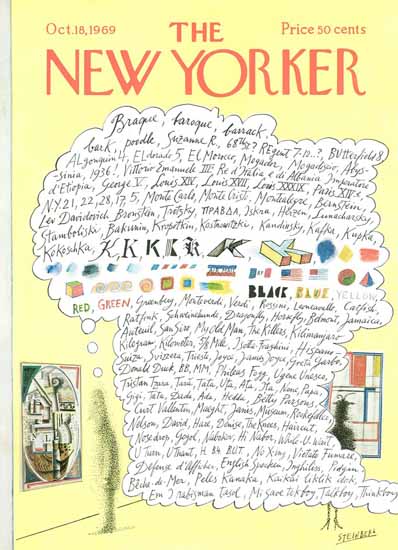 Oct.18,1969
Price 50 cents
THE
NEW YORKER
Braque, baroque, barrack,
bark, poodle, Suzanne R., 68th? REgent 7-n..?, BUtterfield 8
ALgonquin 4, ELdorado 5, El Morocco, Mogador, Mogadiscio, Abys-
sinia, 1936! Vittorio Emanuele III, Re d'Italia e di Albania Imperatore
d'Etiopia, George V, Louis XIV, Louis XVII, Louis XXXIX, Paris XIVe
N.Y. 21, 22, 28, 17, 5, Monte Carlo, Monte Cristo, Montalegre, Bernstein,
Lev Davidovich Bronstein, Trotsky, ПРАВДА, Iskra, Herzen, Lunacharsky
Stamboliski, Bakunin, Kropotkin, Kostrowitzki, Kandinsky, Kafka, Kupka,
Kokoschka, K, K K K K K
BLACK, BLUE, YELLOW,
RED, GREEN, Greenberg, Monteverdi, Verdi, Rossini, Leoncavallo, Catfish,
Ratfink, Schweinhunde, Dragonfly, Horsefly, Belmont, Jamaica,
Auteuil, San Siro, My Old Man, The Killers, Kilimanjaro
Kilogram, Kilometer, 5/8 Mile, Isotta-Fraschini, Hispano-
Suiza, Svizzera, Trieste, Joyce, James Joyce, Greta Garbo,
Donald Duck, BB, MM, Phileas Fogg, Ugene Unesco,
Tristan Tzara, Tarà, Tata, Uta, Ata, Ita, Nine, Papa,
Gigi, Tati, Dada, Ada, Hedda, Betty Parsons,
Curt Valentin, Maeght, Janis, Museum, Rockefeller,
Nelson, David, Hare, Denise, The Knees, Haircut,
Nosedrop, Gogol, Nabokov, Hi Nabor, While-U-Wait,
U Turn, U Thant, H. 84. BUT, No Xing, Vietato Fumare,
Défense d'Afficher, English Spoken, Inghiliss, Podgin
Bêche-de-Mer, Peles Kanaka, Kaikai liklik dok,
Em I rabisman tasol, Mi save tokboy, Talkboy, Thinkboy
STEINBERG